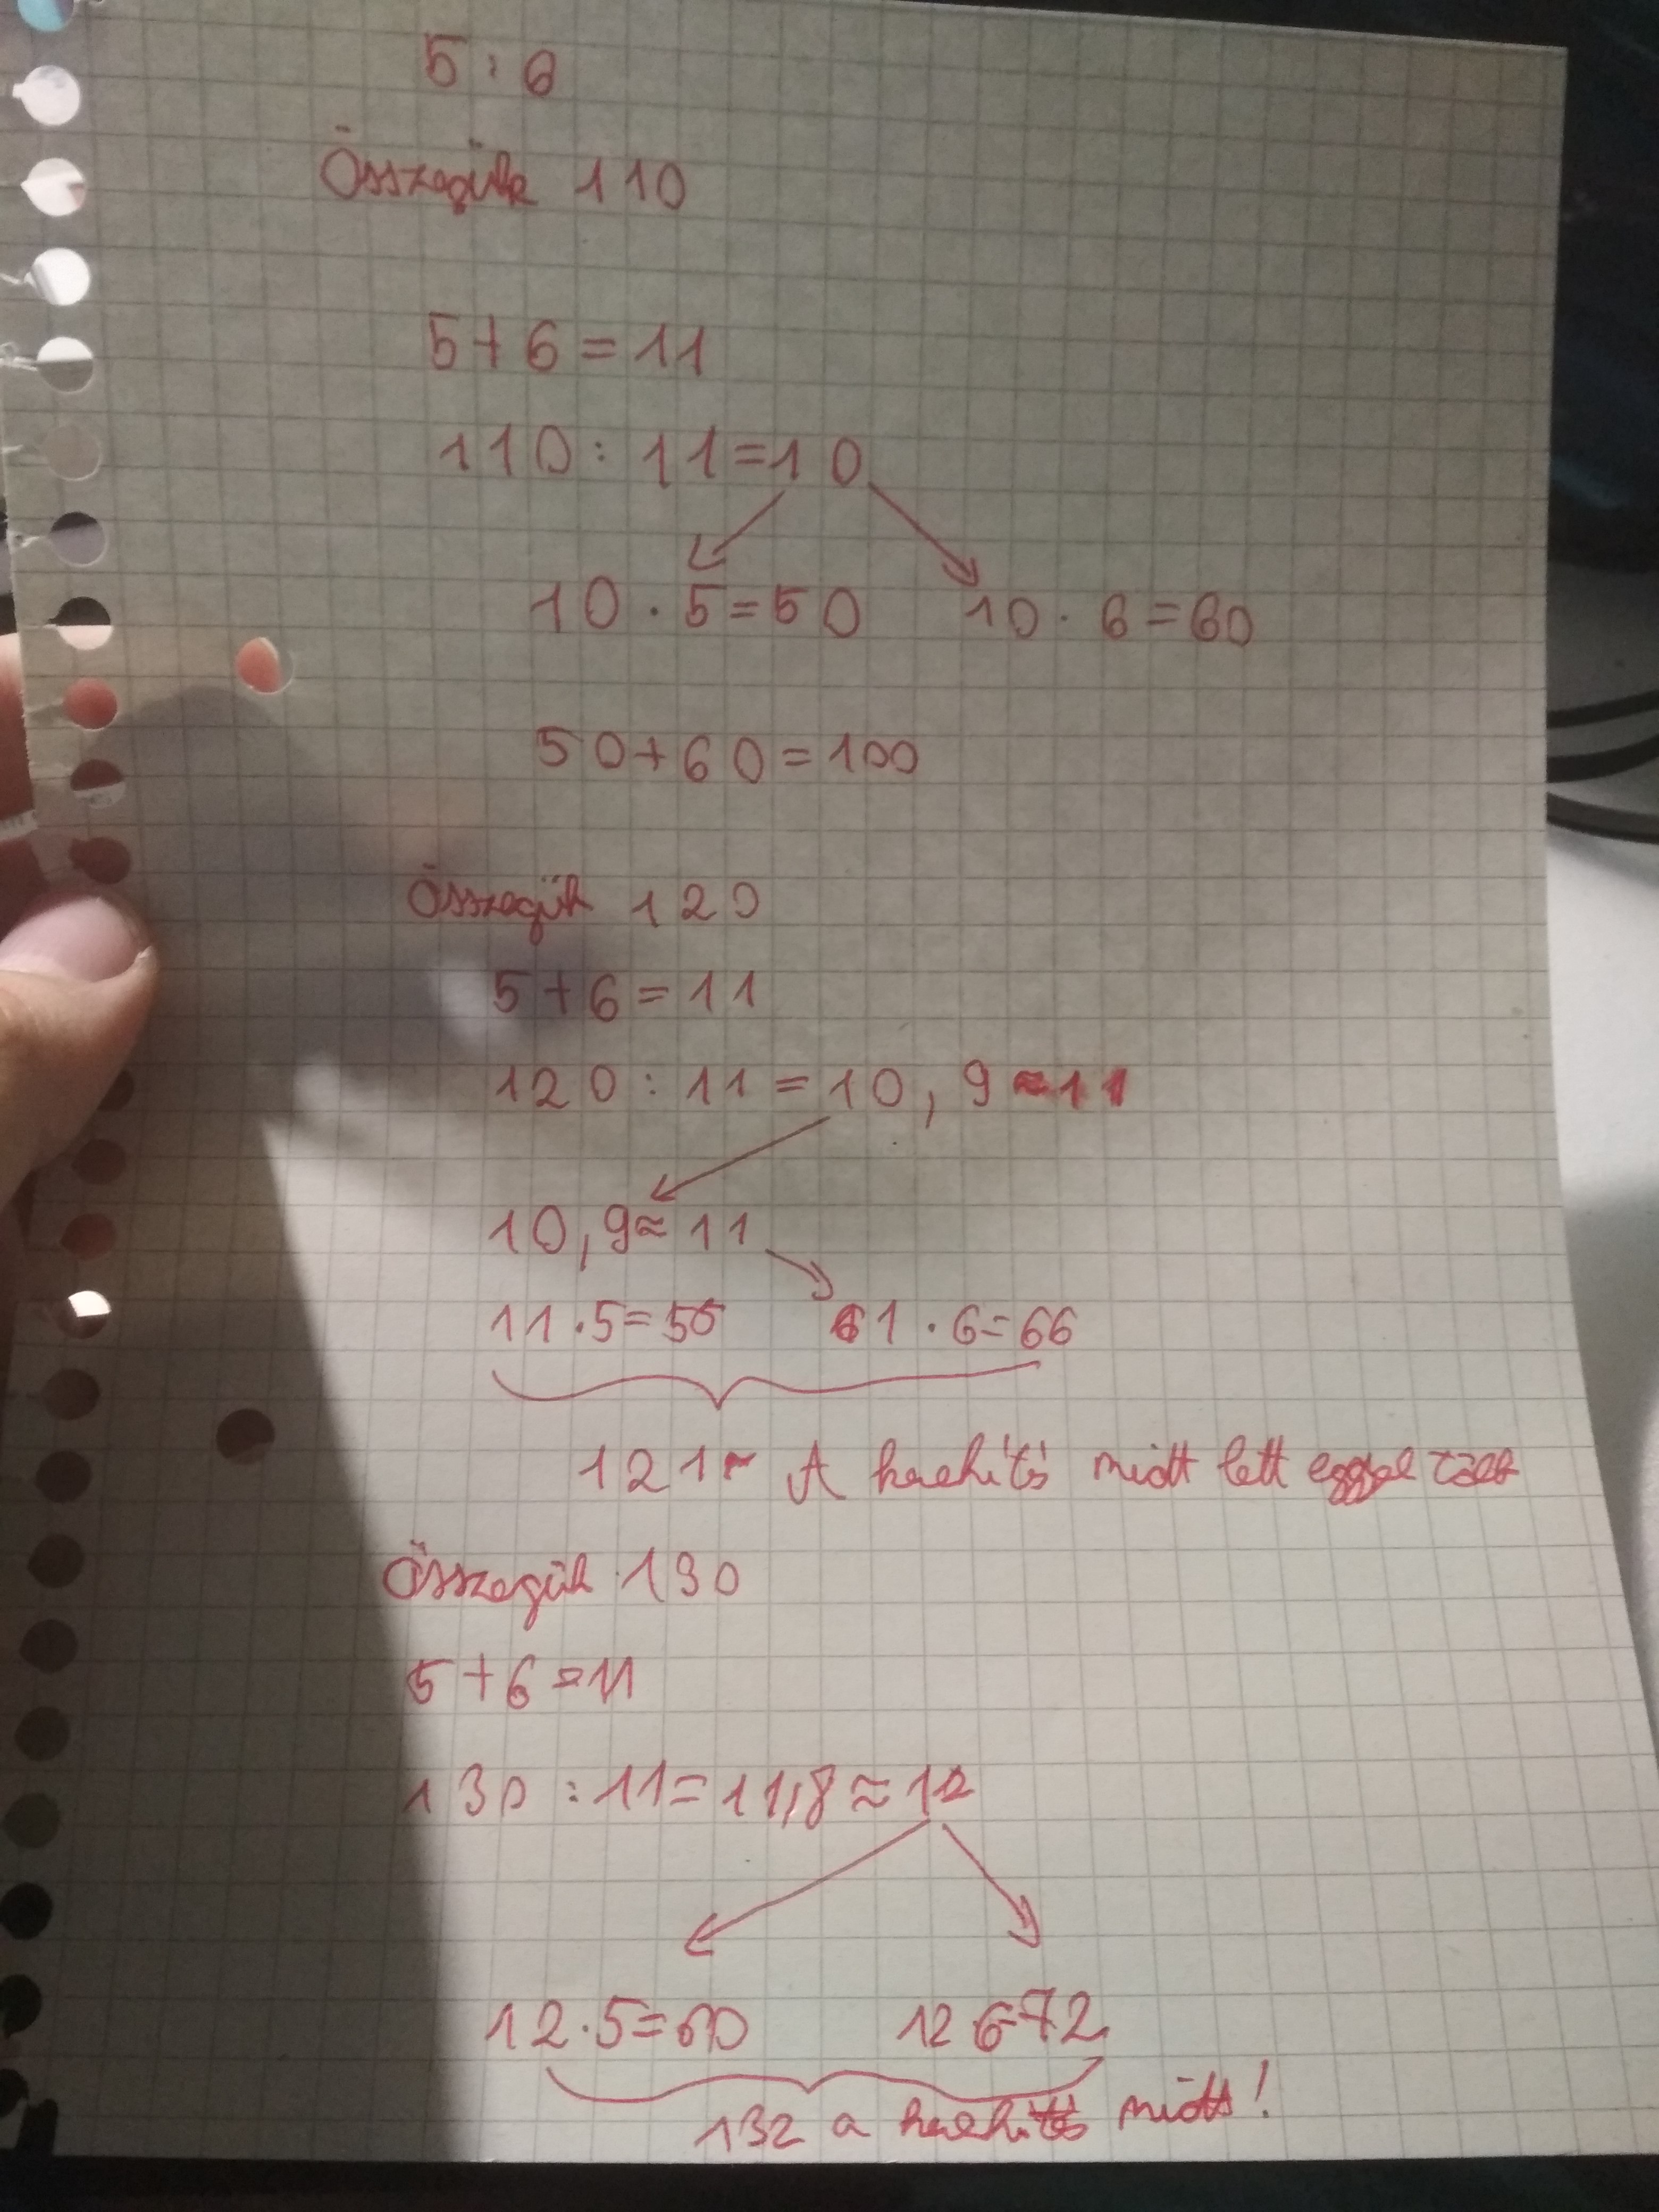 5 : 6
Összegük 110
5 + 6 = 11
110 : 11 = 10
10 · 5 = 50 10 · 6 = 60
50 + 60 = 100
Összegük 120
5 + 6 = 11
120 : 11 = 10,9 ≈ 11
10,9 ≈ 11
11 · 5 = 55 61 · 6 = 66
121 ~ A kerekítés miatt lett eggyel több
Összegük 130
5 + 6 = 11
130 : 11 = 11,8 ≈ 12
12 · 5 = 60 12 6 = 72
132 a kerekítés miatt!